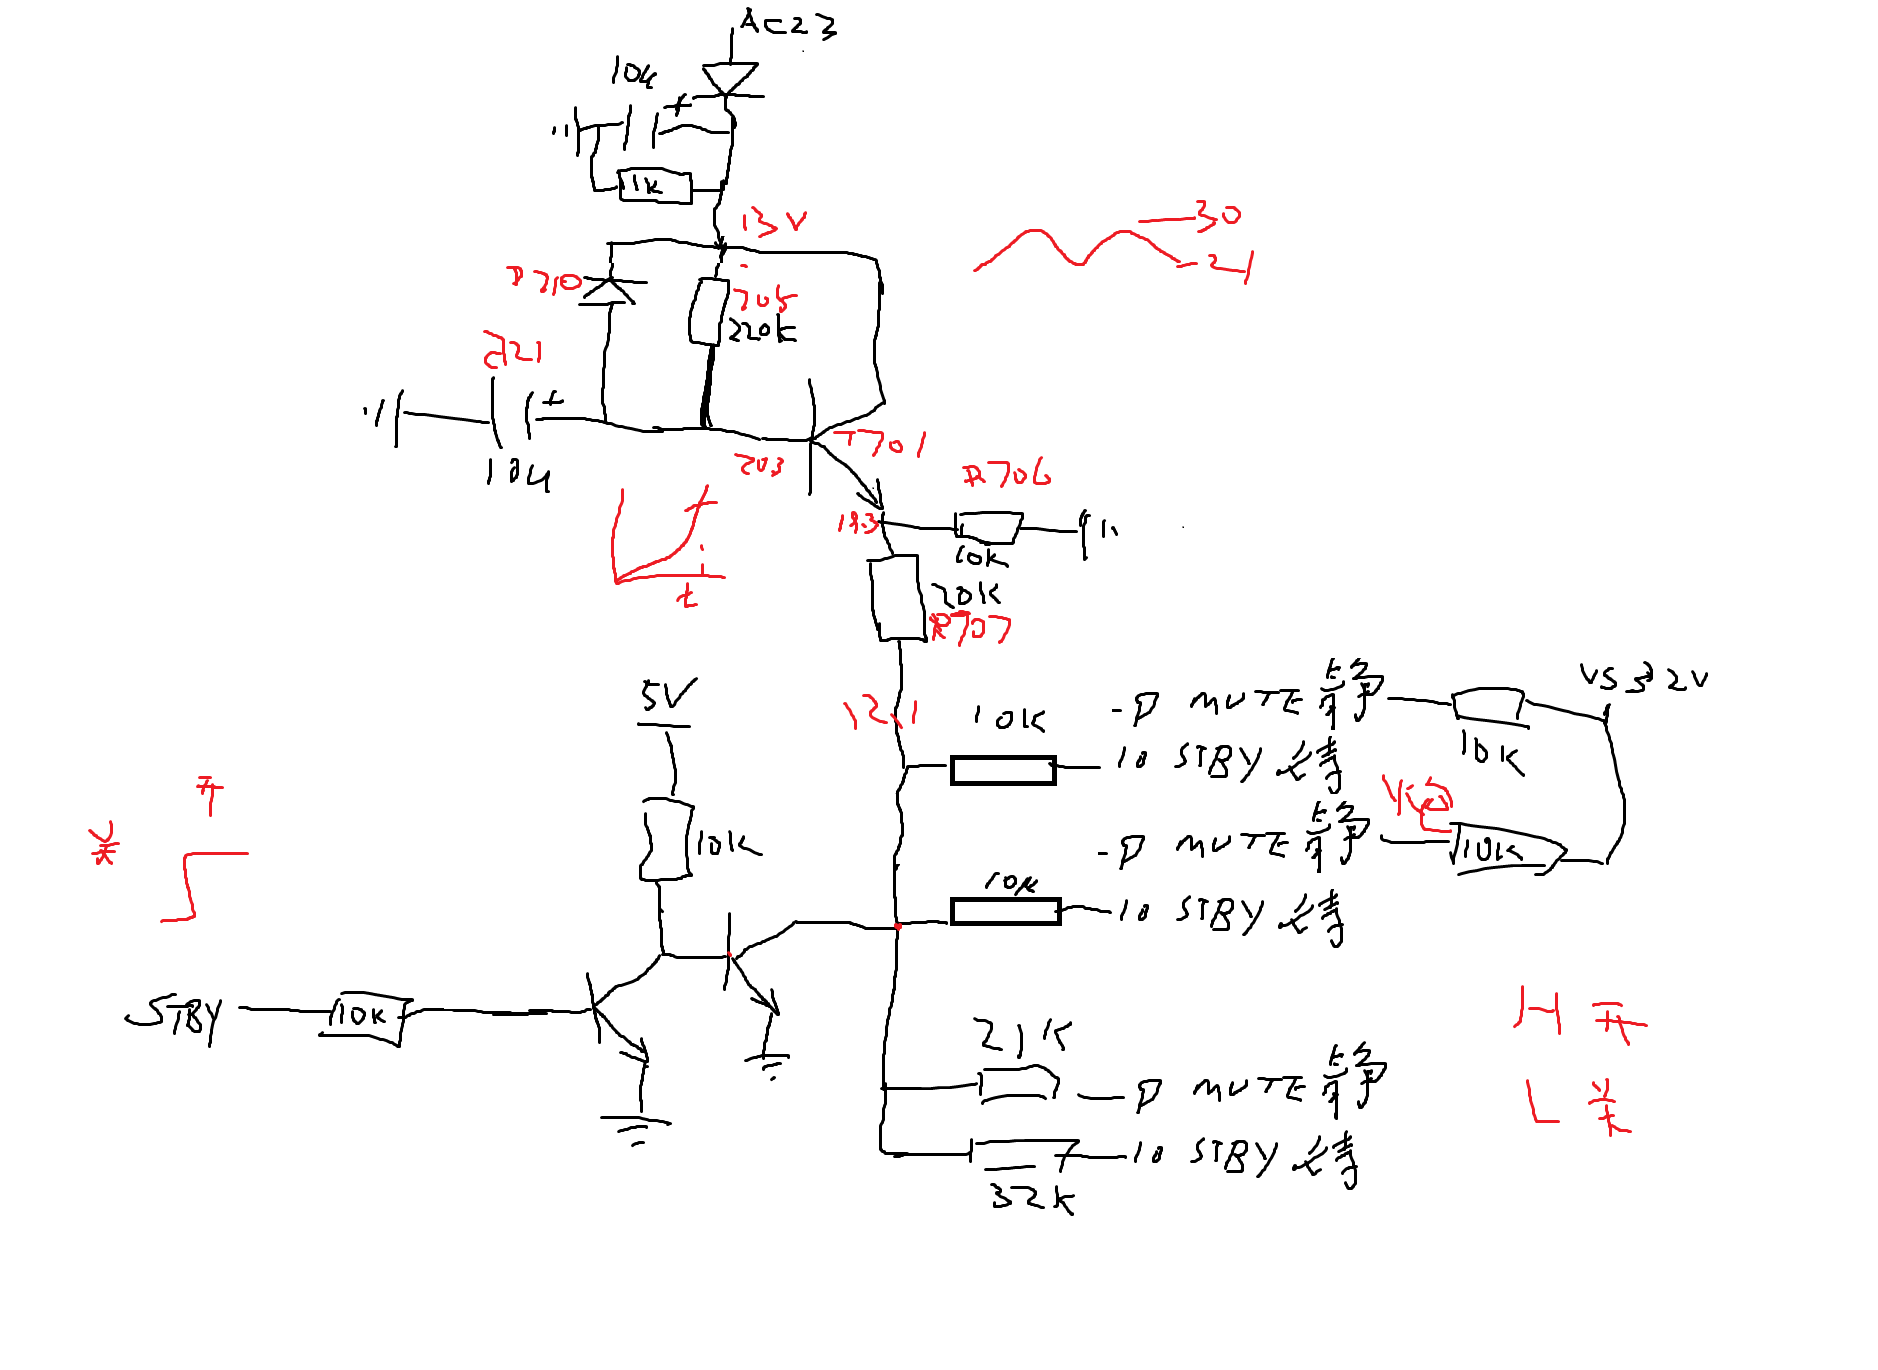 AC23
10u
+
1K
13V
30
21
D710
705
220K
+
10u
203
T701
R706
10K
20K
R707
t
5V
10K
12.1
10K
-P MUTE 静
10 STBY 待
10K
VS 32V
-P MUTE 静
10K
10K
10 STBY 待
开
关
STBY
10K
21K
P MUTE 静
10 STBY 待
32K
H 开
L 关